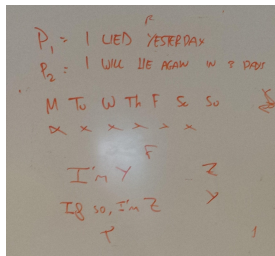 F
P₁ = I LIED YESTERDAY
P₂ = I WILL LIE AGAIN IN 2 DAYS
M Tu W Th F Sa Su
x x x x x x
F
I'm Y Z
If so, I'm Z Y
T